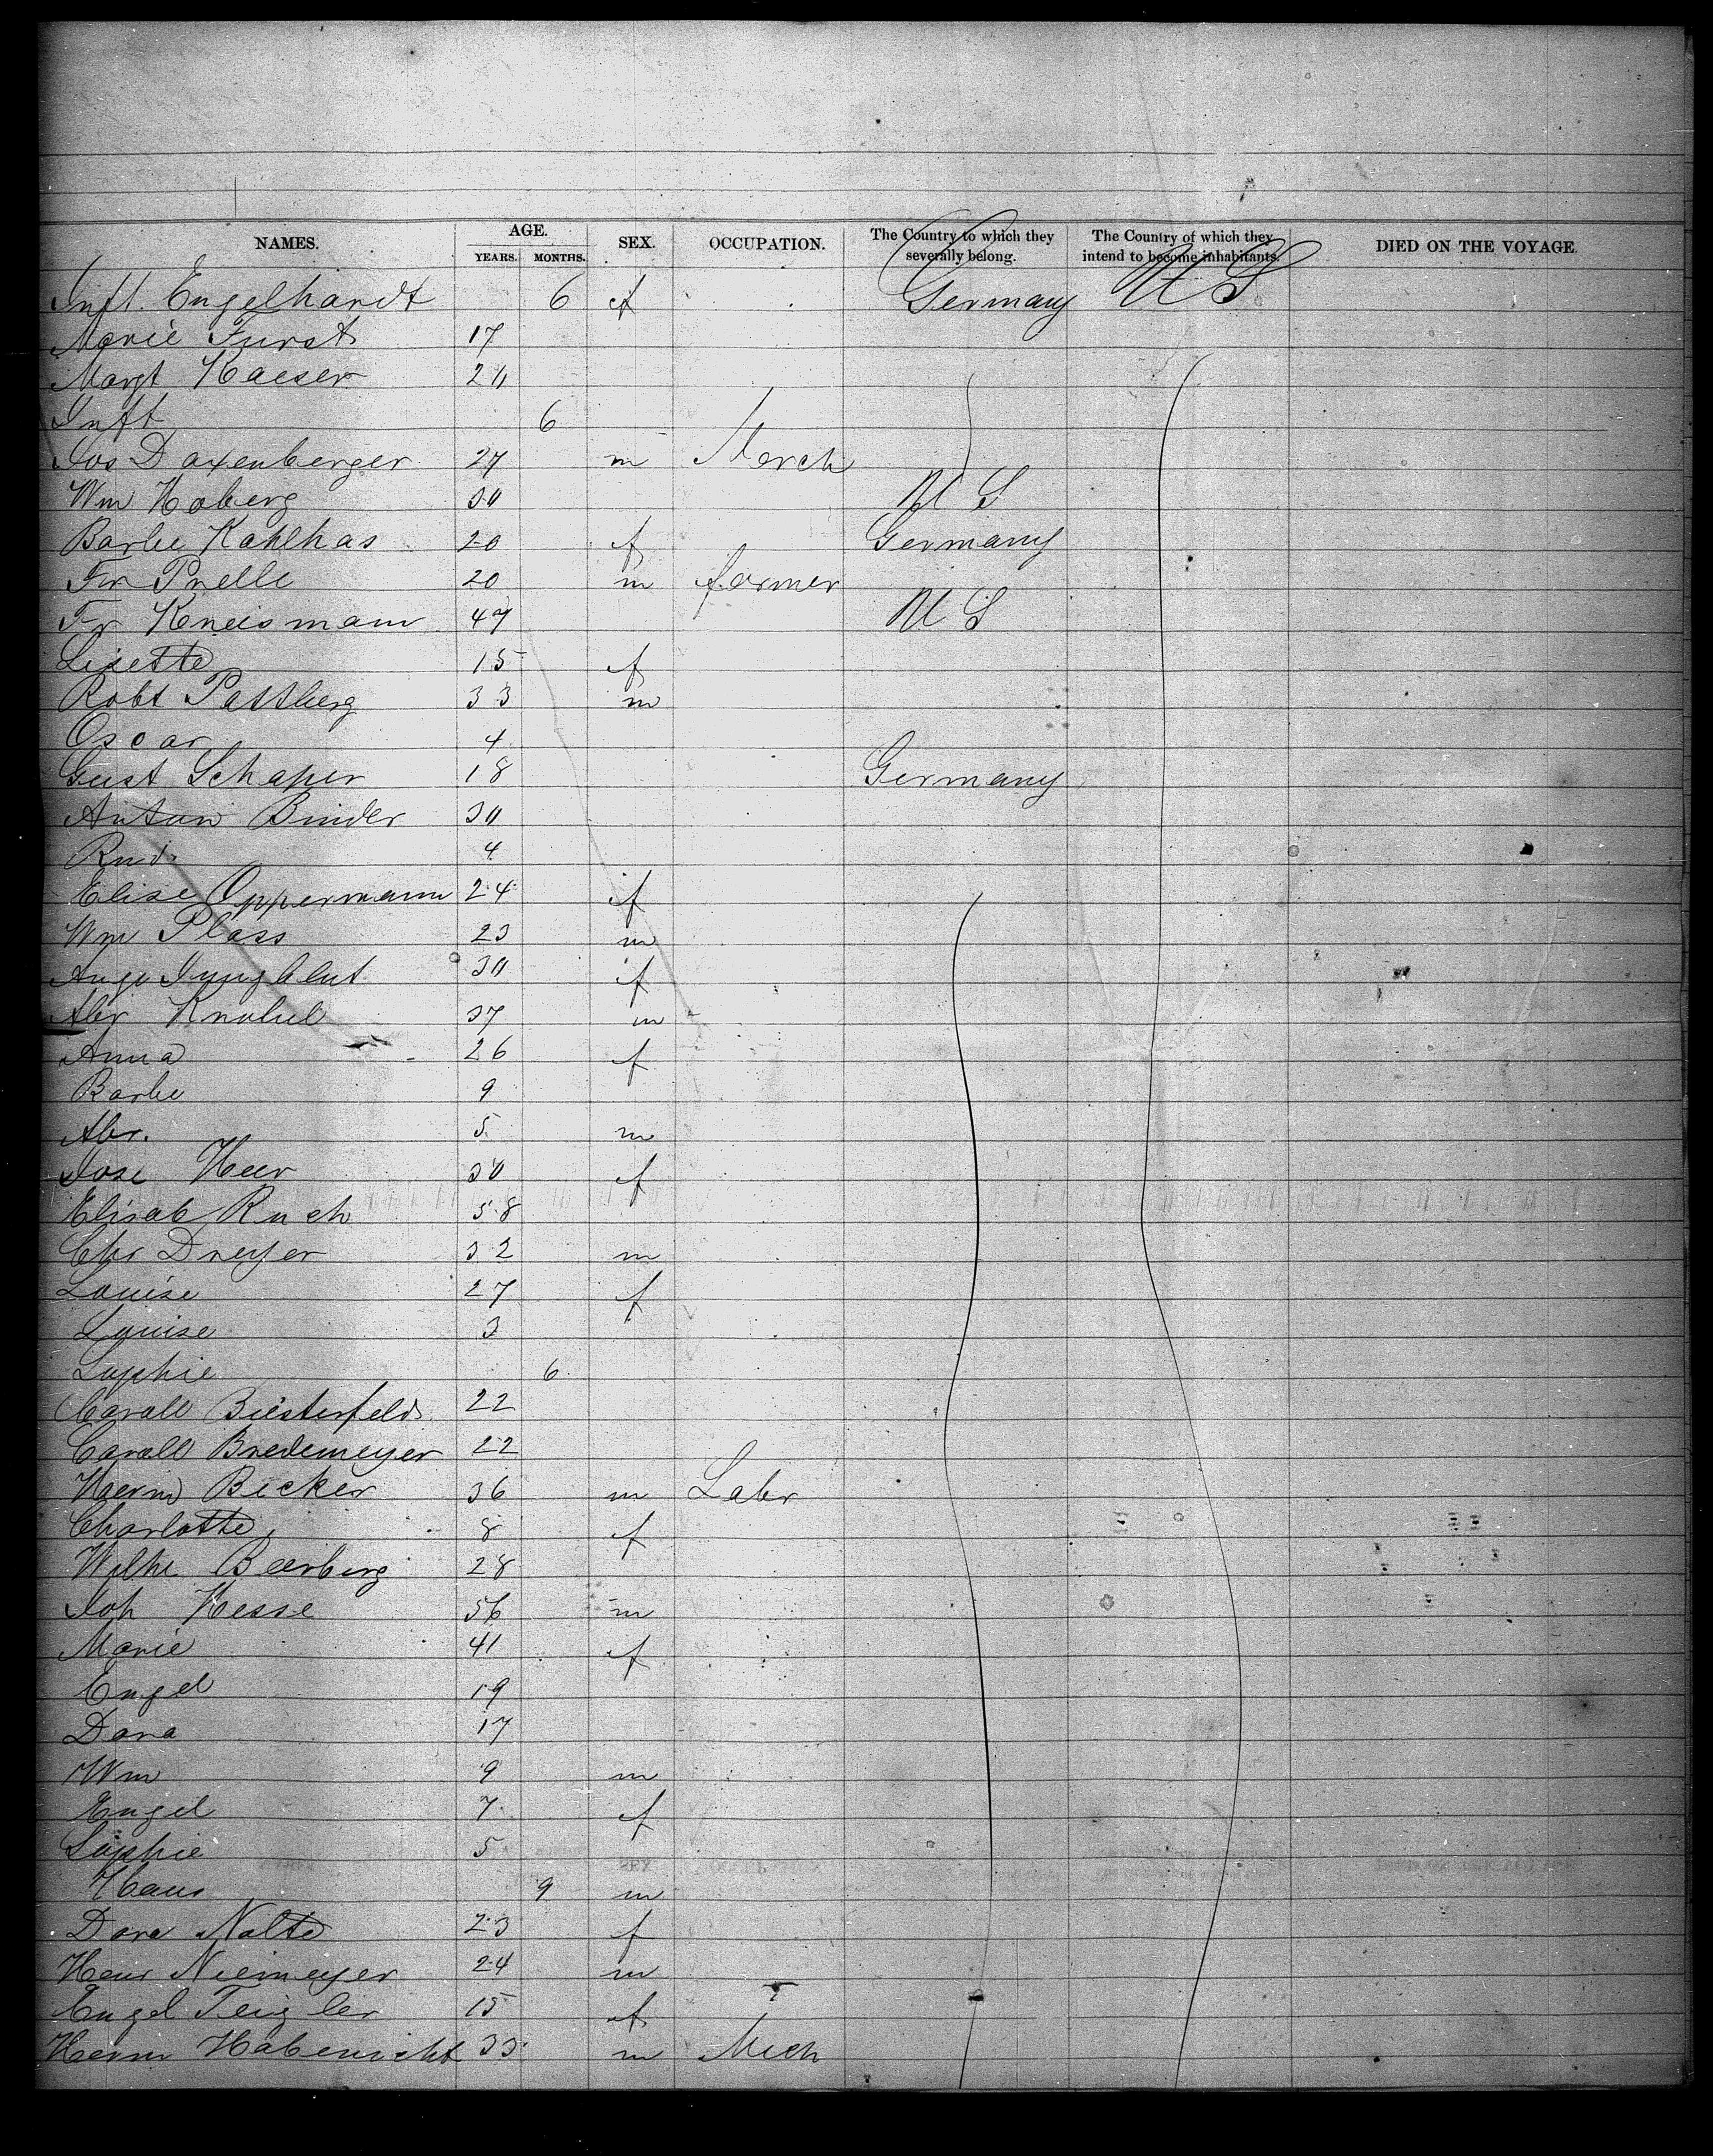 NAMES. AGE. SEX. OCCUPATION. The Country to which they severally belong. The Country of which they intend to become inhabitants. DIED ON THE VOYAGE.
YEARS. MONTHS.
Inft. Engelhardt 6 f Germany U S
Marie Furst 17
Margt Kaeser 20
Inft 6
Jos Daxenberger 27 m Merch
Wm Hoberg 30 U S
Barbe Kahlhas 20 f Germany
Fr Prelle 20 m farmer
Fr Kneismann 47 U S
Lisette 15 f
Robt Pattberg 33 m
Oscar 4
Gust Schaper 18 Germany
Anton Binder 30
Rud. 4
Elise Oppermann 24 f
Wm Plass 23 m
Augu Jungblut 30 f
Abr Knobel 37 m
Anna 26 f
Barbe 9
Abr. 5 m
Jose Heer 30 f
Elisab Ruch 58
Chr Dreyer 32 m
Louise 27 f
Louise 3
Sophie 6
Carol Biesterfeld 22
Carol Bredemeyer 22
Herm Becker 36 m Labr
Charlotte 8 f
Wilhe Beerberg 28
Joh Hesse 56 m
Marie 41 f
Engel 19
Dora 17
Wm 9 m
Engel 7 f
Sophie 5
Hans 9 m
Dora Nolte 23 f
Henr Niemeyer 24 m
Engel 15 f
Herm Habenicht 33 m Mech